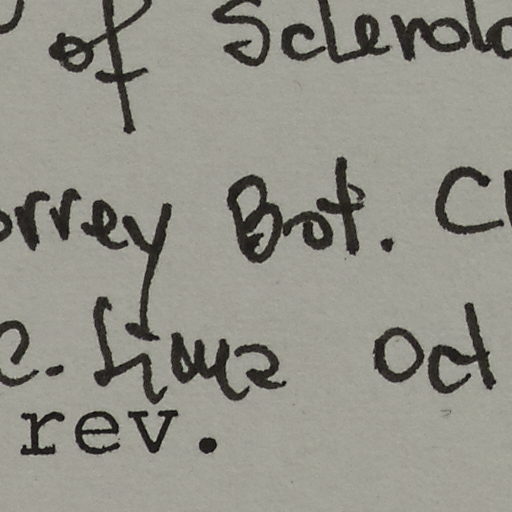 of Sclerola
orrey Bot. Cl
c. Oct
rev.